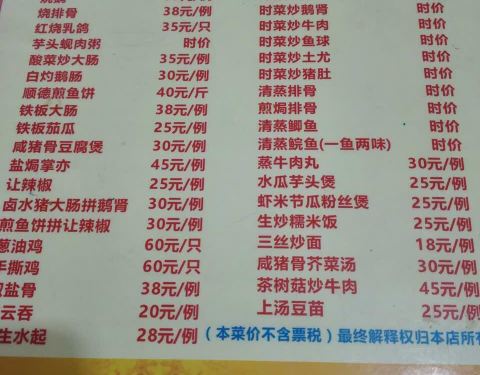 烧排骨 38元/例
红烧乳鸽 35元/只
芋头蚬肉粥 时价
酸菜炒大肠 35元/例
白灼鹅肠 30元/例
顺德煎鱼饼 40元/斤
铁板大肠 38元/例
铁板茄瓜 25元/例
咸猪骨豆腐煲 30元/例
盐焗掌亦 45元/例
让辣椒 25元/例
卤水猪大肠拼鹅肾 30元/例
煎鱼饼拼让辣椒 30元/例
葱油鸡 60元/只
手撕鸡 60元/只
盐骨 38元/例
云吞 20元/例
生水起 28元/例
时菜炒鹅肾 时价
时菜炒牛肉 时价
时菜炒鱼球 时价
时菜炒土尤 时价
时菜炒猪肚 时价
清蒸排骨 时价
煎焗排骨 时价
清蒸鲫鱼 时价
清蒸鲩鱼(一鱼两味) 时价
蒸牛肉丸 30元/例
水瓜芋头煲 25元/例
虾米节瓜粉丝煲 25元/例
生炒糯米饭 25元/例
三丝炒面 18元/例
咸猪骨芥菜汤 30元/例
茶树菇炒牛肉 45元/例
上汤豆苗 25元/例
（本菜价不含票税）最终解释权归本店所